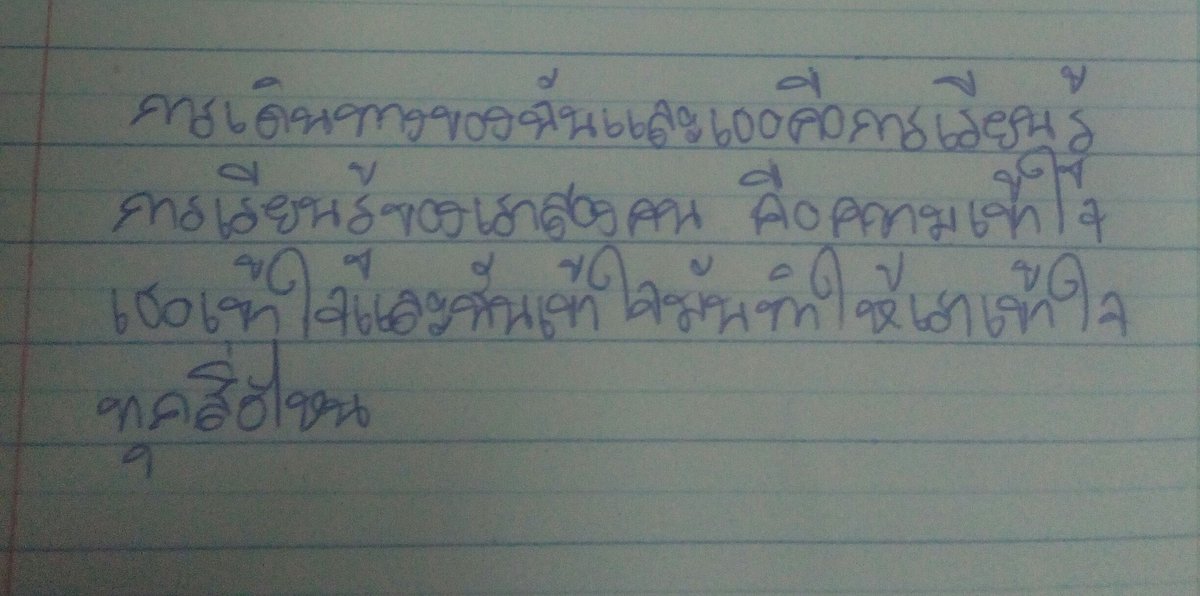 การเดินทางของฉันและเธอคือการเรียนรู้
การเรียนรู้ของเราสองคน คือความเข้าใจ
เธอเข้าใจและฉันเข้าใจมันทำให้เราเข้าใจ
ทุกสิ่ง